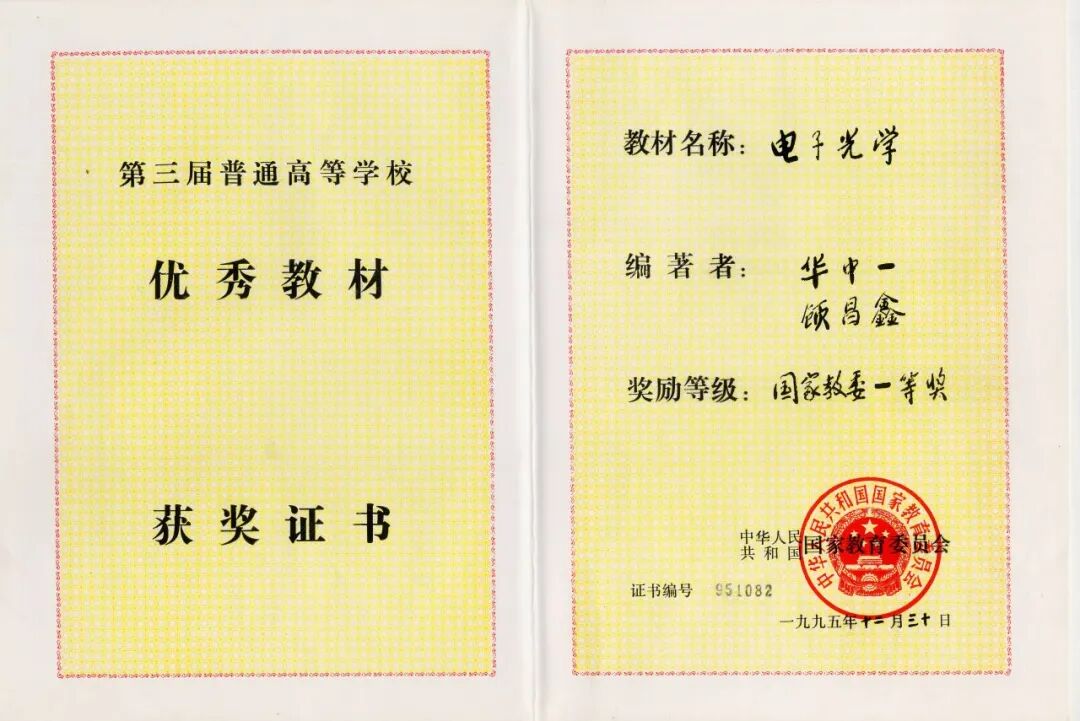 第三届普通高等学校
优秀教材
获奖证书
教材名称：电子光学
编著者：华中一
顾昌鑫
奖励等级：国家教委一等奖
中华人民
共和国
国家教育委员会
中华人民共和国国家教育委员会
证书编号 951082
一九九五年十二月三十日